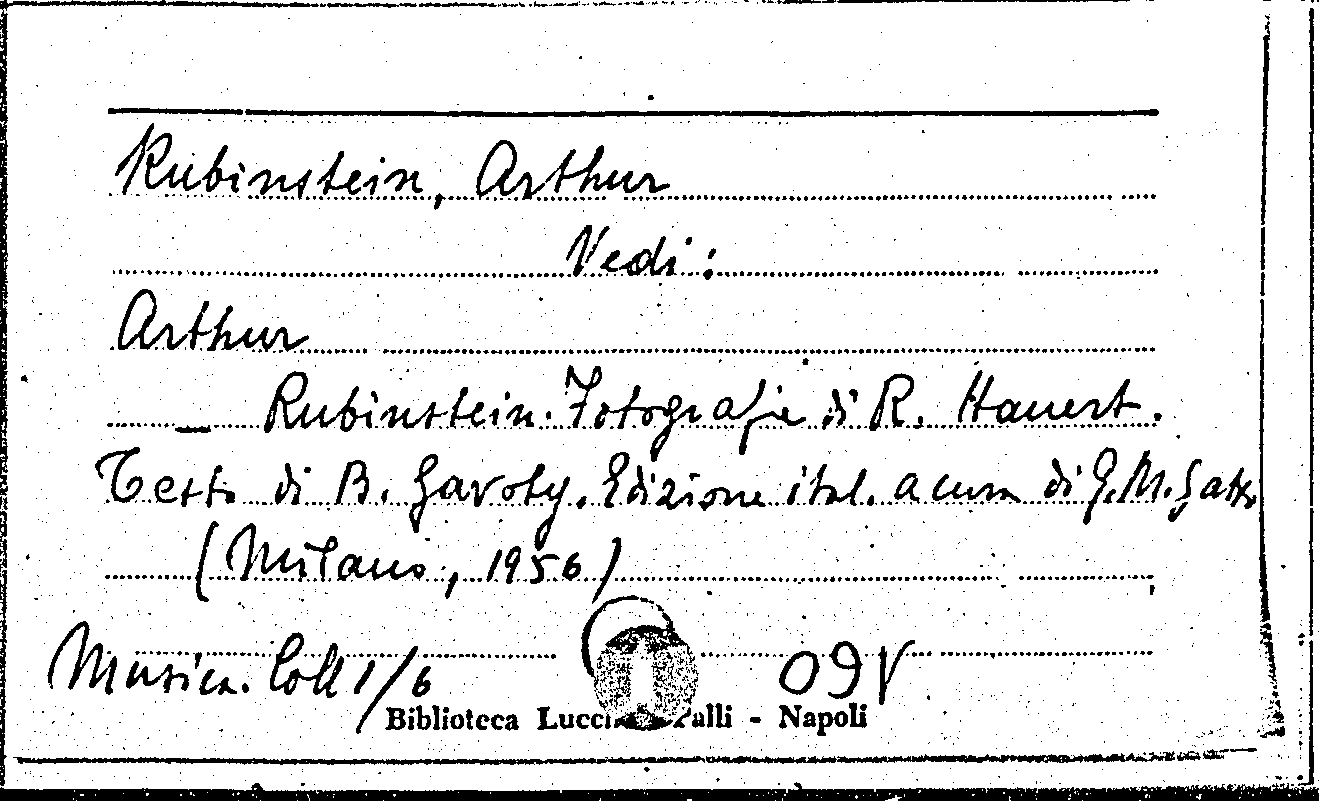 Rubinstein, Arthur
Vedi:
Arthur
— Rubinstein. Fotografie di R. Hauert.
Testo di B. Gavoty. Edizione ital. a cura di G. M. Gatti
(Milano, 1956)
Musica. Coll 1/6 09V
Biblioteca - Napoli